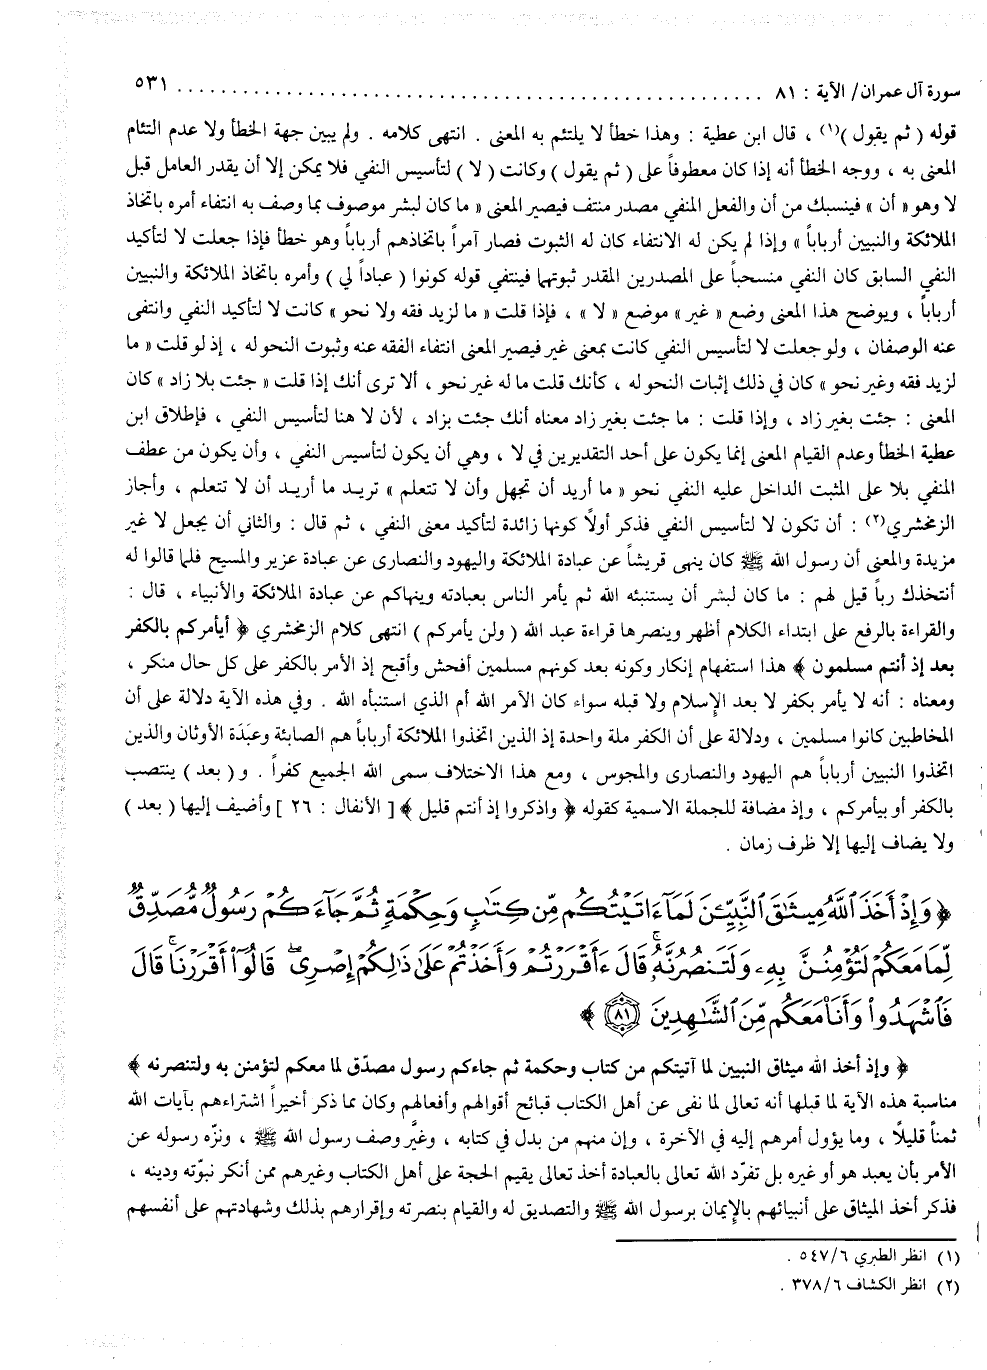 سورة آل عمران/ الآية : ٨١ ........................................................ ٥٣١
قوله ( ثم يقول )(١) ، قال ابن عطية : وهذا خطأ لا يلتئم به المعنى . انتهى كلامه . ولم يبين جهة الخطأ ولا عدم التئام
المعنى به ، ووجه الخطأ أنه إذا كان معطوفاً على ( ثم يقول ) وكانت ( لا ) لتأسيس النفي فلا يمكن إلا أن يقدر العامل قبل
لا وهو « أن » فينسبك من أن والفعل المنفي مصدر منتف فيصير المعنى « ما كان لبشر موصوف بما وصف به انتفاء أمره باتخاذ
الملائكة والنبيين أرباباً » وإذا لم يكن له الانتفاء كان له الثبوت فصار آمراً باتخاذهم أرباباً وهو خطأ فإذا جعلت لا لتأكيد
النفي السابق كان النفي منسحباً على المصدرين المقدر ثبوتها فينتفي قوله كونوا ( عباداً لي ) وأمره باتخاذ الملائكة والنبيين
أرباباً ، ويوضح هذا المعنى وضع « غير » موضع « لا » ، فإذا قلت « ما لزيد فقه ولا نحو » كانت لا لتأكيد النفي وانتفى
عنه الوصفان ، ولو جعلت لا لتأسيس النفي كانت بمعنى غير فيصير المعنى انتفاء الفقه عنه وثبوت النحو له ، إذ لو قلت « ما
لزيد فقه وغير نحو » كان في ذلك إثبات النحو له ، كأنك قلت ما له غير نحو ، ألا ترى أنك إذا قلت « جئت بلا زاد » كان
المعنى : جئت بغير زاد ، وإذا قلت : ما جئت بغير زاد معناه أنك جئت بزاد ، لأن لا هنا لتأسيس النفي ، فإطلاق ابن
عطية الخطأ وعدم القيام المعنى إنما يكون على أحد التقديرين في لا ، وهي أن يكون لتأسيس النفي ، وأن يكون من عطف
المنفي بلا على المثبت الداخل عليه النفي نحو « ما أريد أن تجهل وأن لا تتعلم » تريـد ما أريـد أن لا تتعلم ، وأجاز
الزمخشري(٢) : أن تكون لا لتأسيس النفي فذكر أولاً كونها زائدة لتأكيد معنى النفي ، ثم قال : والثاني أن يجعل لا غير
مزيدة والمعنى أن رسول الله ﷺ كان ينهى قريشاً عن عبادة الملائكة واليهود والنصارى عن عبادة عزير والمسيح فلما قالوا له
أنتخذك رباً قيل لهم : ما كان لبشر أن يستنبئه الله ثم يأمر الناس بعبادته وينهاكم عن عبادة الملائكة والأنبياء ، قال :
والقراءة بالرفع على ابتداء الكلام أظهر وينصرها قراءة عبد الله ( ولن يأمركم ) انتهى كلام الزمخشري ﴿ أيأمركم بالكفر
بعد إذ أنتم مسلمون ﴾ هذا استفهام إنكار وكونه بعد كونهم مسلمين أفحش وأقبح إذ الأمر بالكفر على كل حال منكر ،
ومعناه : أنه لا يأمر بكفر لا بعد الإِسلام ولا قبله سواء كان الآمر الله أم الذي استنبأه الله . وفي هذه الآية دلالة على أن
المخاطبين كانوا مسلمين ، ودلالة على أن الكفر ملة واحدة إذ الذين اتخذوا الملائكة أرباباً هم الصابئة وعبَدَة الأوثان والذين
اتخذوا النبيين أرباباً هم اليهود والنصارى والمجوس ، ومع هذا الاختلاف سمى الله الجميع كفراً . و( بعد ) ينتصب
بالكفر أو بيأمركم ، وإذ مضافة للجملة الاسمية كقوله ﴿ واذكروا إذ أنتم قليل ﴾ [ الأنفال : ٢٦ ] وأضيف إليها ( بعد )
ولا يضاف إليها إلا ظرف زمان .
﴿ وَإِذْ أَخَذَ ٱللَّهُ مِيثَٰقَ ٱلنَّبِيِّـۧنَ لَمَآ ءَاتَيْتُكُم مِّن كِتَٰبٍ وَحِكْمَةٍ ثُمَّ جَآءَكُمْ رَسُولٌ مُّصَدِّقٌ
لِّمَا مَعَكُمْ لَتُؤْمِنُنَّ بِهِۦ وَلَتَنصُرُنَّهُۥ ۚ قَالَ ءَأَقْرَرْتُمْ وَأَخَذْتُمْ عَلَىٰ ذَٰلِكُمْ إِصْرِى ۖ قَالُوٓا۟ أَقْرَرْنَا ۚ قَالَ
فَٱشْهَدُوا۟ وَأَنَا۠ مَعَكُم مِّنَ ٱلشَّٰهِدِينَ ﴿٨١﴾ ﴾
﴿ وإذ أخذ الله ميثاق النبيين لما آتيتكم من كتاب وحكمة ثم جاءكم رسول مصدّق لما معكم لتؤمنن به ولتنصرنه ﴾
مناسبة هذه الآية لما قبلها أنه تعالى لما نفى عن أهل الكتاب قبائح أقوالهم وأفعالهم وكان مما ذكر أخيراً اشتراءهم بآيات الله
ثمناً قليلًا ، وما يؤول أمرهم إليه في الآخرة ، وإن منهم من بدل في كتابه ، وغيَّر وصف رسول الله ﷺ ، ونزّه رسوله عن
الأمر بأن يعبد هو أو غيره بل تفرّد الله تعالى بالعبادة أخذ تعالى يقيم الحجة على أهل الكتاب وغيرهم ممن أنكر نبوّته ودينه ،
فذكر أخذ الميثاق على أنبيائهم بالإِيمان برسول الله ﷺ والتصديق له والقيام بنصرته وإقرارهم بذلك وشهادتهم على أنفسهم
(١) انظر الطبري ٥٤٧/٦ .
(٢) انظر الكشاف ٣٧٨/٦ .